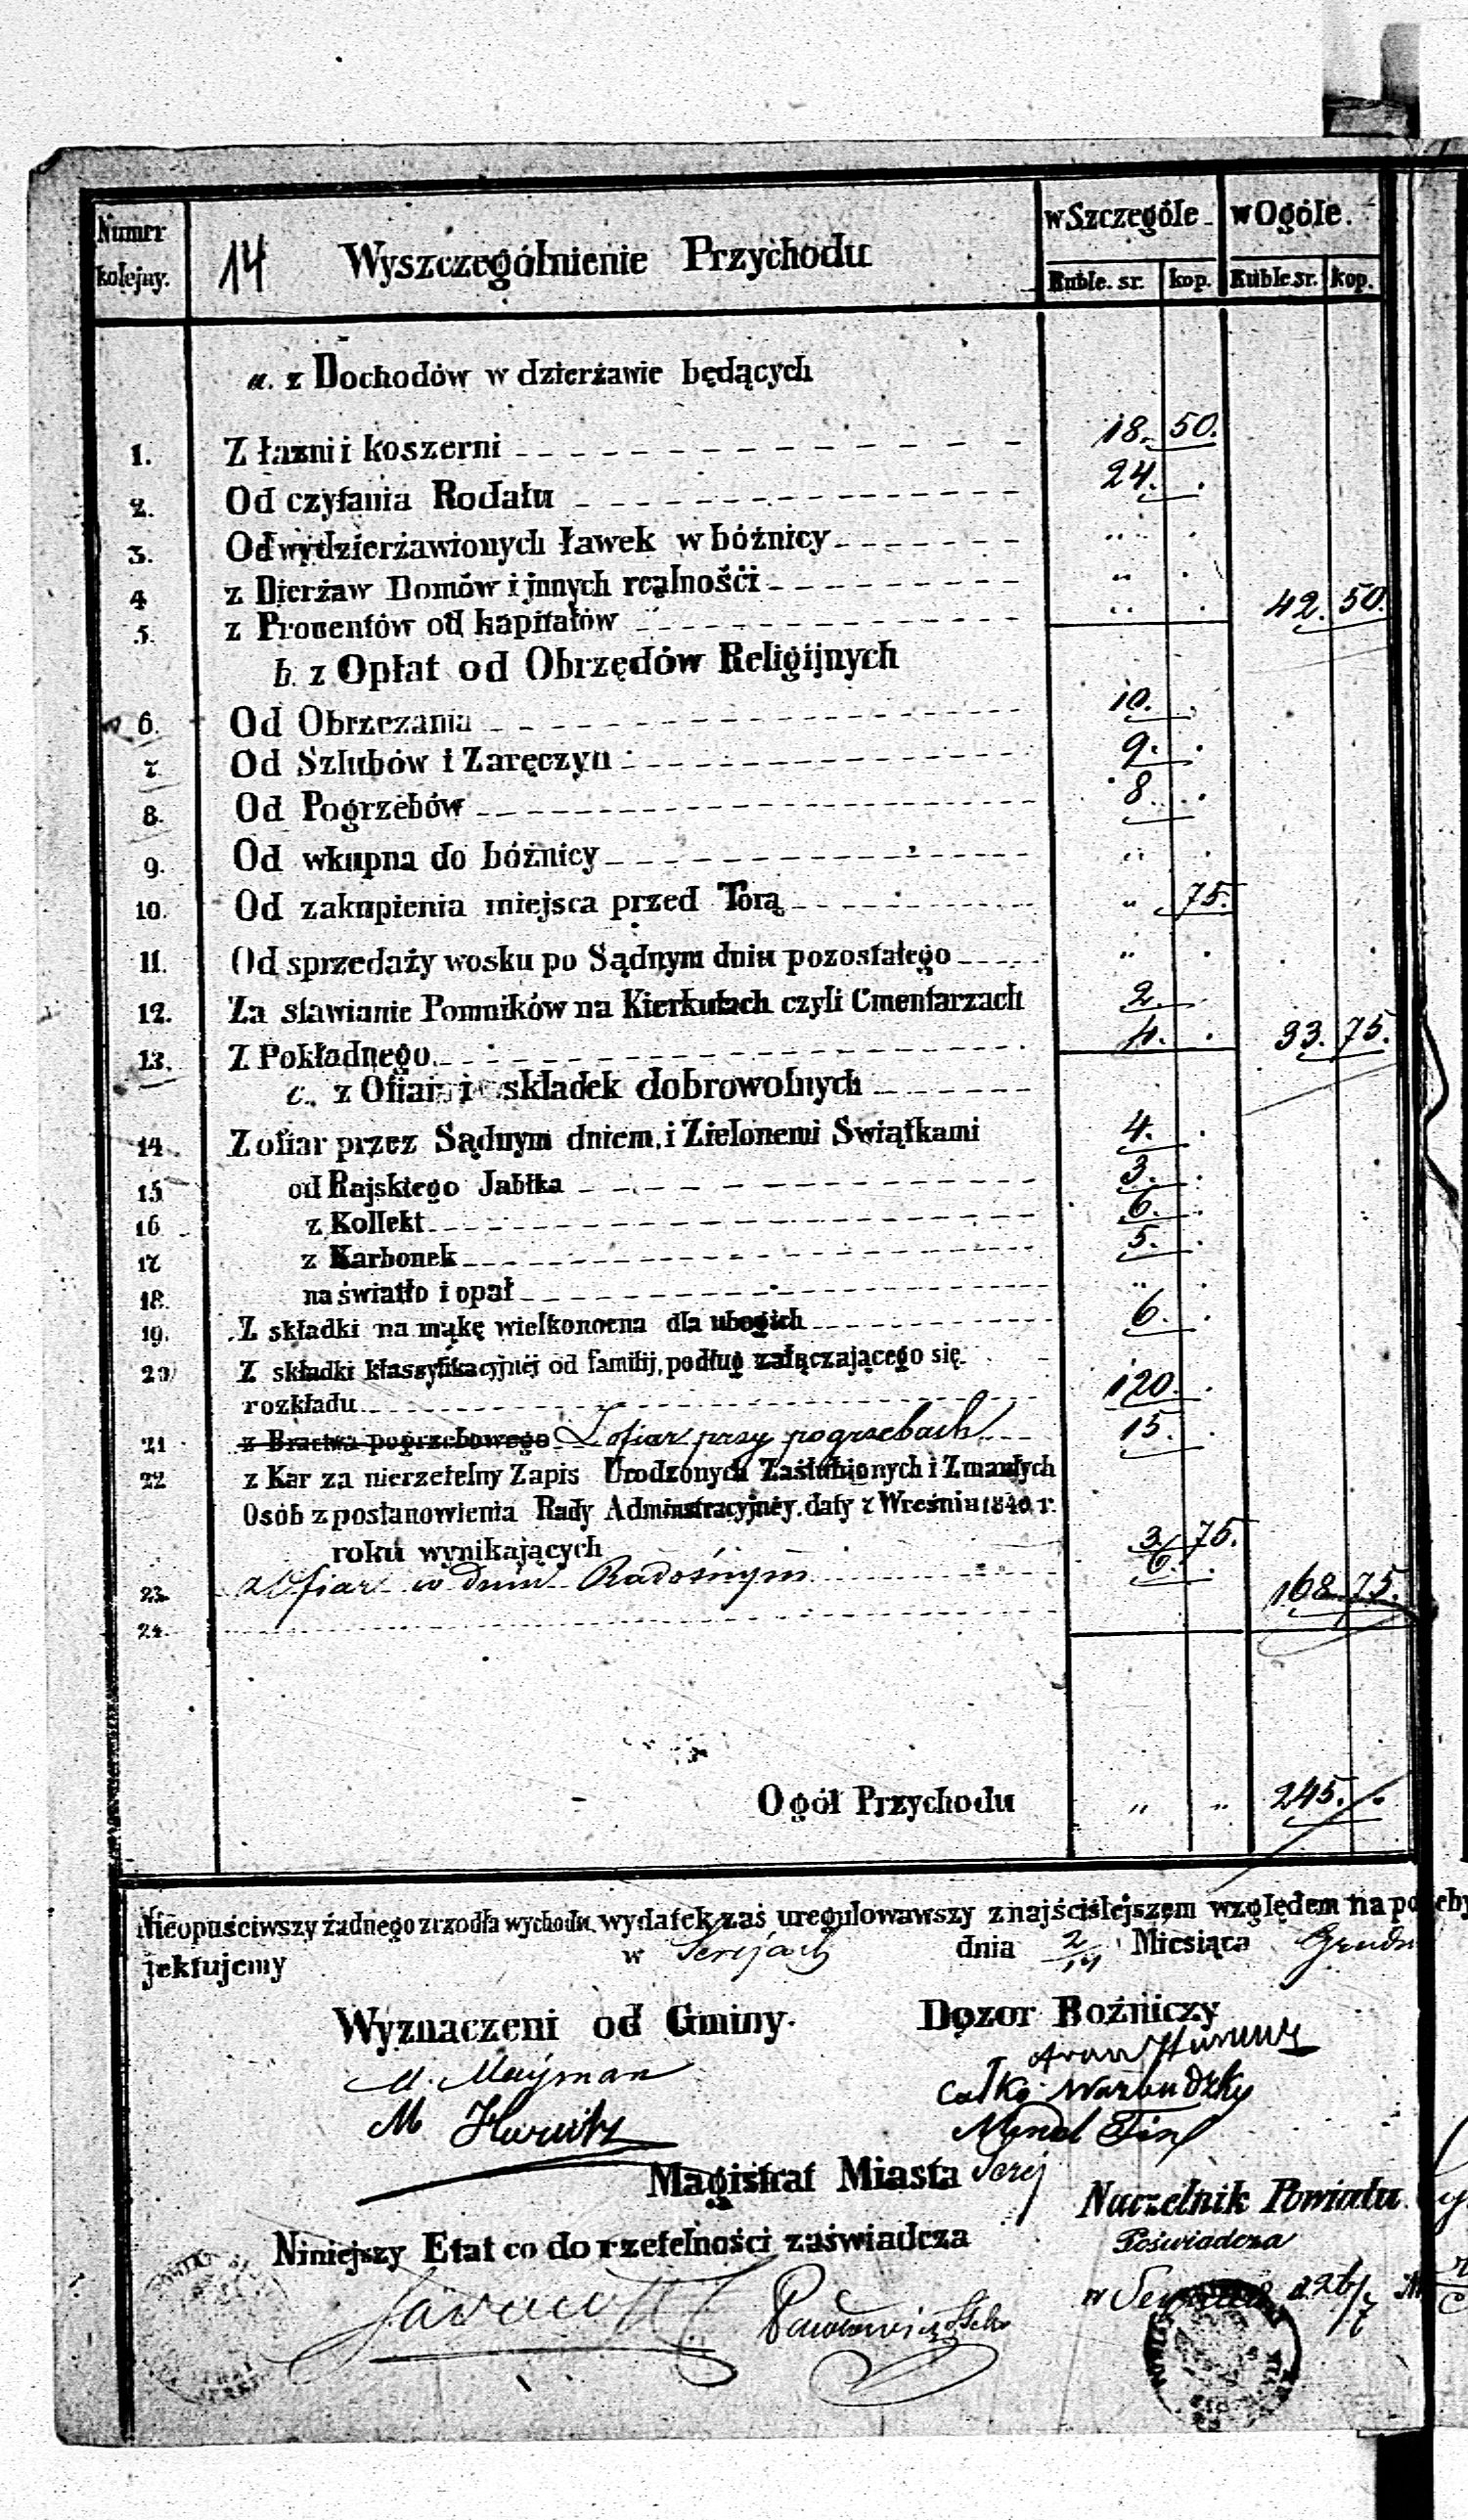 Numer kolejny. 14 Wyszczególnienie Przychodu w Szczególe w Ogóle.
Ruble. sr. kop. Ruble sr. kop.
a. z Dochodów w dzierżawie będących
1. Z łaźni i koszerni 18. 50.
2. Od czytania Rodału 24. .
3. Od wydzierżawionych ławek w bóźnicy " .
4 z Dierżaw Domów i jnnych realnośći " .
5. z Procentów od kapitałów " . 42. 50.
b. z Opłat od Obrzędów Religijnych
6. Od Obrzezania 10. .
7. Od Szlubów i Zaręczyn 9. .
8. Od Pogrzebów 8. .
9. Od wkupna do bóźnicy " .
10. Od zakupienia miejsca przed Torą " 75.
11. Od sprzedaży wosku po Sądnym dniu pozostałego " . . .
12. Za stawianie Pomników na Kierkutach czyli Cmentarzach 2. .
13. Z Pokładnego 4. . 33. 75.
c. z Ofiar i składek dobrowolnych
14. Z ofiar przez Sądnym dniem i Zielonemi Swiątkami 4. .
15 od Rajskiego Jabłka 3. .
16 z Kollekt 6. .
17 z Karbonek 5. .
18. na światło i opał " .
19. Z składki na mąkę wielkonocna dla ubogich 6. .
20 Z składki klassyfikacyjnéj od familij, podług załączającego się
rozkładu 120. .
21 z Bractwa pogrzebowego Z ofiar przy pogrzebach 15. .
22 z Kar za nierzetelny Zapis Urodzonych Zaślubionych i Zmarłych
Osób z postanowienia Rady Administracyjnéy. daty z Wreśnia 1840 r.
roku wynikających 3. 75.
23. z Ofiar w dniu Radośnym 6. . 168 75.
24.
Ogół Przychodu " " 245. .
Nieopuściwszy żadnego zrzodła wychodu, wydatek zaś uregulowawszy z najściślejszem względem na
jektujemy w Serejach dnia 2/14 Miesiąca Grudn
Wyznaczeni od Gminy. Dozor Boźniczy
M. Mayman
M Hurwitz
Mendel Fin
Magistrat Miasta Serej
Naczelnik Powiatu
Niniejszy Etat co do rzetelności zaświadcza Poświadcza